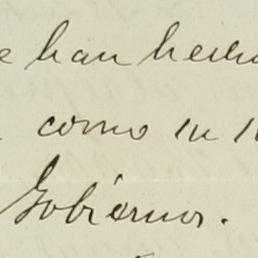 e han hech
como in
Gobierno.